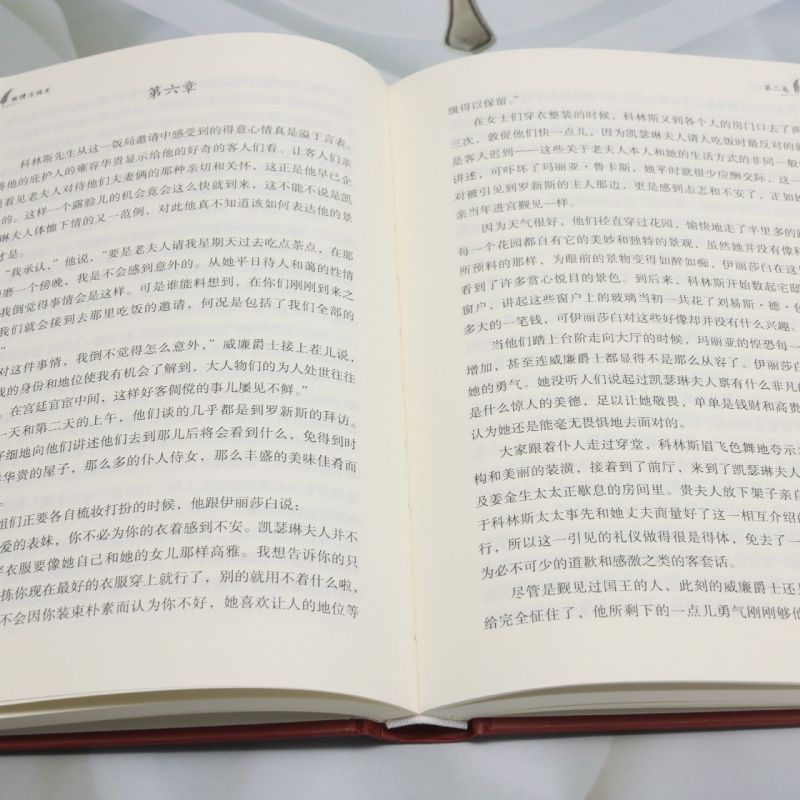 傲慢与偏见
第六章
科林斯先生从这一饭局邀请中感受到的得意心情真是溢于言表。
将他的庇护人的雍容华贵显示给他的好奇的客人们看、让客人们亲
眼看见老夫人对待他们夫妻俩的那种亲切和关怀，这正是他早已企
的。这样一个露脸儿的机会竟会这么快就到来，这不能不说是凯
琳夫人体恤下情的又一范例，对此他真不知道该如何表达他的景
才是。
“我承认，”他说，“要是老夫人请我星期天过去吃点茶点，在那
磨一个傍晚，我是不会感到意外的。从她平日待人和蔼的性情
我倒觉得事情会是这样。可是谁能料想到，在你们刚刚到来之
我们就会接到去那里吃饭的邀请，何况是包括了我们全部的
”
对这件事情，我倒不觉得怎么意外，”威廉爵士接上茬儿说，
我的身份和地位使我有机会了解到，大人物们的为人处世往往
。在宫廷官宦中间，这样好客倜傥的事儿屡见不鲜。”
一天和第二天的上午，他们谈的几乎都是到罗新斯的拜访。
仔细地向他们讲述他们去到那儿后将会看到什么，免得到时
华贵的屋子，那么多的仆人侍女，那么丰盛的美味佳肴而
。
姐们正要各自梳妆打扮的时候，他跟伊丽莎白说：
爱的表妹，你不必为你的衣着感到不安。凯瑟琳夫人并不
穿衣服要像她自己和她的女儿那样高雅。我想告诉你的只
拣你现在最好的衣服穿上就行了，别的就用不着什么啦，
不会因你装束朴素而认为你不好，她喜欢让人的地位等
第二卷
级得以保留。”
在女士们穿衣整装的时候，科林斯又到各个人的房门口去了两
三次，敦促他们快一点儿，因为凯瑟琳夫人请人吃饭时最反对的就
是客人迟到——这些关于老夫人本人和她的生活方式的非同一般的
讲述，可吓坏了玛丽亚·鲁卡斯，她平时就很少应酬交际，这一
对被引见到罗新斯的主人那边，更是感到忐忑和不安了，正如她
亲当年进宫觐见一样。
因为天气很好，他们径直穿过花园，愉快地走了半里多的路
每一个花园都自有它的美妙和独特的景观，虽然她并没有像科
所预料的那样，为眼前的景物变得如醉如痴，伊丽莎白在这
看到了许多赏心悦目的景色。到后来，科林斯开始数起宅邸
窗户，讲起这些窗户上的玻璃当初一共花了刘易斯·德·包
多大的一笔钱，可伊丽莎白对这些好像却并没有什么兴趣。
当他们踏上台阶走向大厅的时候，玛丽亚的惶恐每一
增加，甚至连威廉爵士都显得不是那么从容了。伊丽莎白
她的勇气。她没听人们说起过凯瑟琳夫人禀有什么非凡的
是什么惊人的美德，足以让她敬畏，单单是钱财和高贵
认为她还是能毫无畏惧地去面对的。
大家跟着仆人走过穿堂，科林斯眉飞色舞地夸示
构和美丽的装潢，接着到了前厅，来到了凯瑟琳夫人
及姜金生太太正歇息的房间里。贵夫人放下架子亲自
于科林斯太太事先和她丈夫商量好了这一相互介绍的
行，所以这一引见的礼仪做得很是得体，免去了一
为必不可少的道歉和感激之类的客套话。
尽管是觐见过国王的人，此刻的威廉爵士还是
给完全怔住了，他所剩下的一点儿勇气刚刚够他